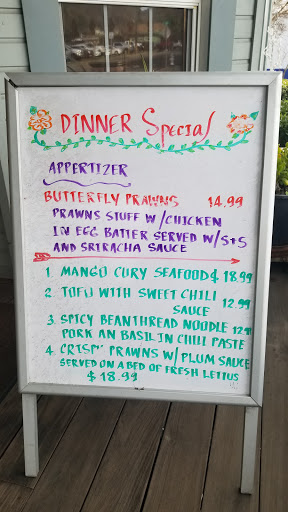 DINNER Special
APPERTIZER
BUTTERFLY PRAWNS 14.99
PRAWNS STUFF W/CHICKEN
IN EGG BATTER SERVED W/S+S
AND SRIRACHA SAUCE
1 MANGO CURY SEAFOOD $ 18.99
2. TOFU WITH SWEET CHILI
SAUCE 12.99
3 SPICY BEANTHREAD NOODLE 12.99
PORK AN BASIL IN CHILI PASTE
4 CRISP' PRAWNS W/ PLUM SAUCE
SERVED ON A BED OF FRESH LETTUS
$ 18.99